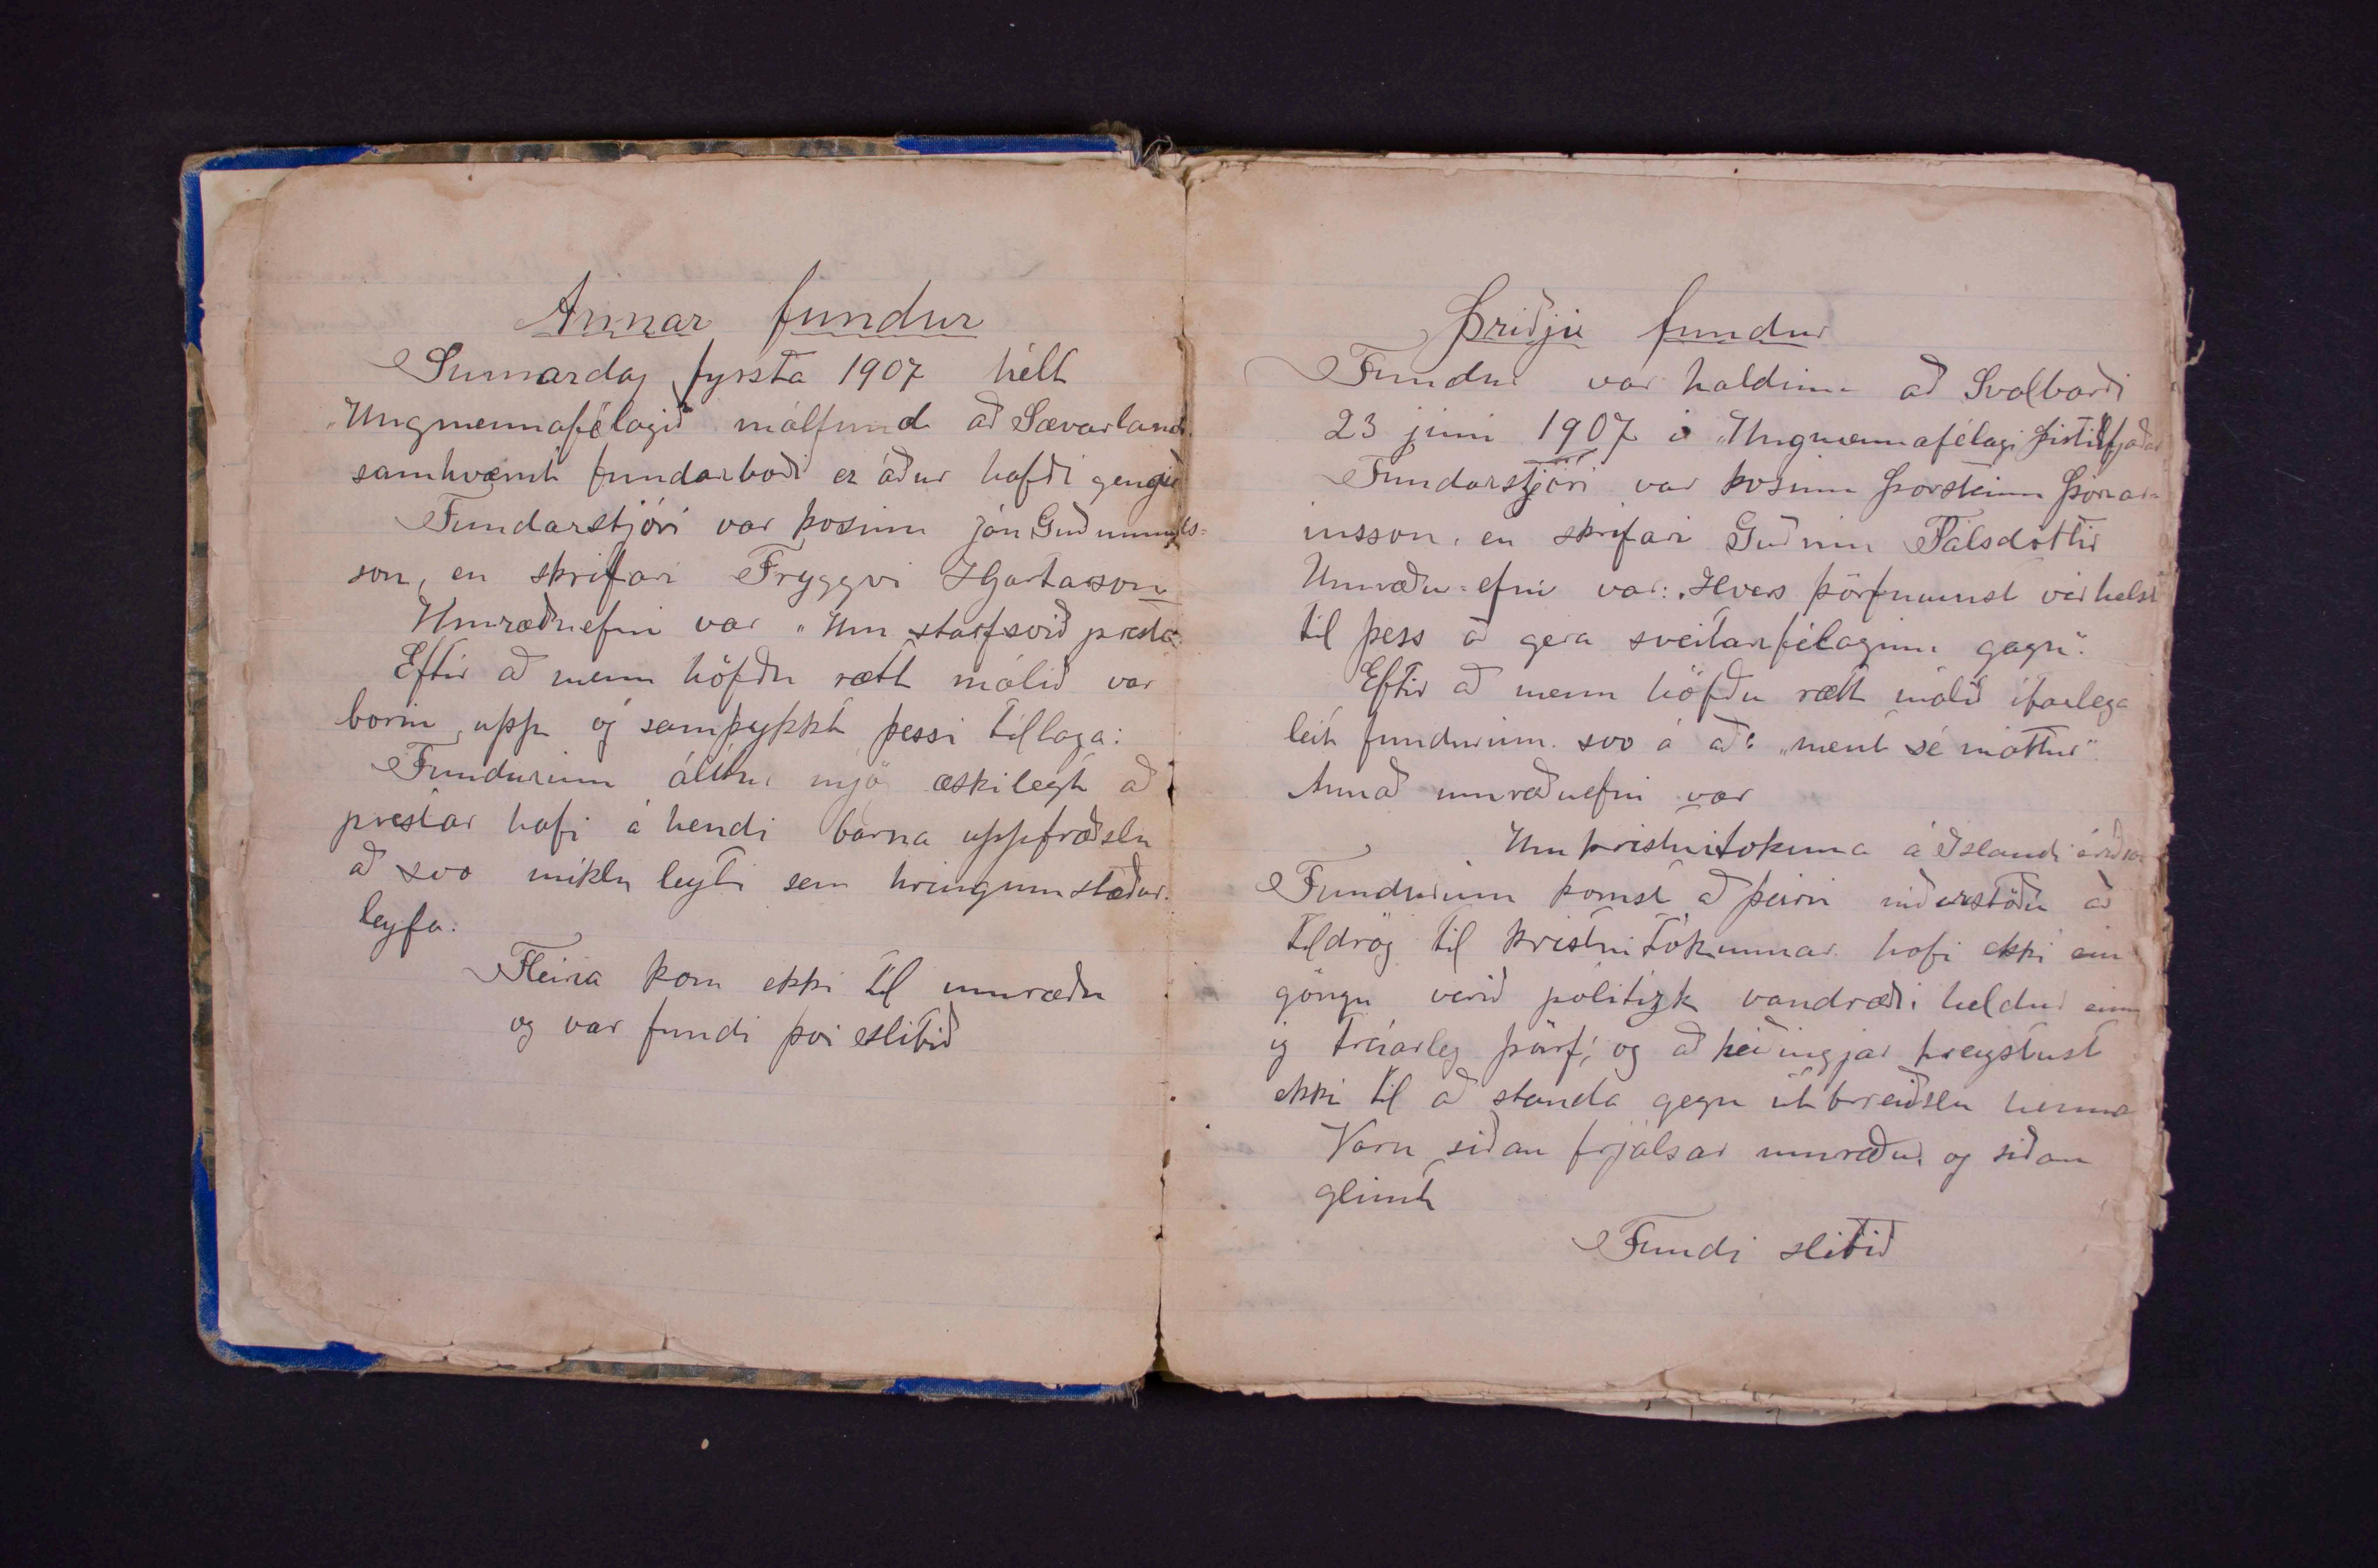 Annar fundur
Sumardag fyrsta 1907 hélt
„Ungmennafélagið málfund að Sævarlandi
samhvæmt fundarboði er áður hafði gengið
Fundarstjóri var kosinn jón Guðmunds=
son, en skrifari Tryggvi Hjartarson
Umræðuefni var „Um starfsvið presta"
Eftir að menn höfðu rætt málið var
borin upp og samþykkt þessi tillaga:
Fundurinn álítur mjög æskilegt að
prestar hafi á hendi barna uppfræðslu
að svo miklu leyti sem kringumstæður
leyfa.
Fleira kom ekki til umræðu
og var fundi því slitið
Þriðji fundur
Fundur var haldinn að Svalbarði
23 júní 1907 í „Ungmennafélagi Þistilfjarðar
Fundarstjóri var kosinn Þorsteinn Þórar=
insson, en skrifari Guðrún Pálsdóttir
Umræðu=efni var: „Hvers þörfnumst vér helst
til þess að gera sveitarfélaginu gagn".
Eftir að menn höfðu rætt málið ítarlega
leit fundurinn svo á að: „ment sé máttur".
Annað umræðuefni var
Um kristnitökuna á Íslandi árið
Fundurinn komst að þeirri niðurstöðu að
tildrög til kristnitökunnar hafi ekki ein
göngu verið pólitizk vandræði heldur einn
ig trúarleg þörf; og að heiðingjar treystust
ekki til að standa gegn útbreiðslu hennar
Voru síðan frjálsar umræður og síðan
glímt
Fundi slitið